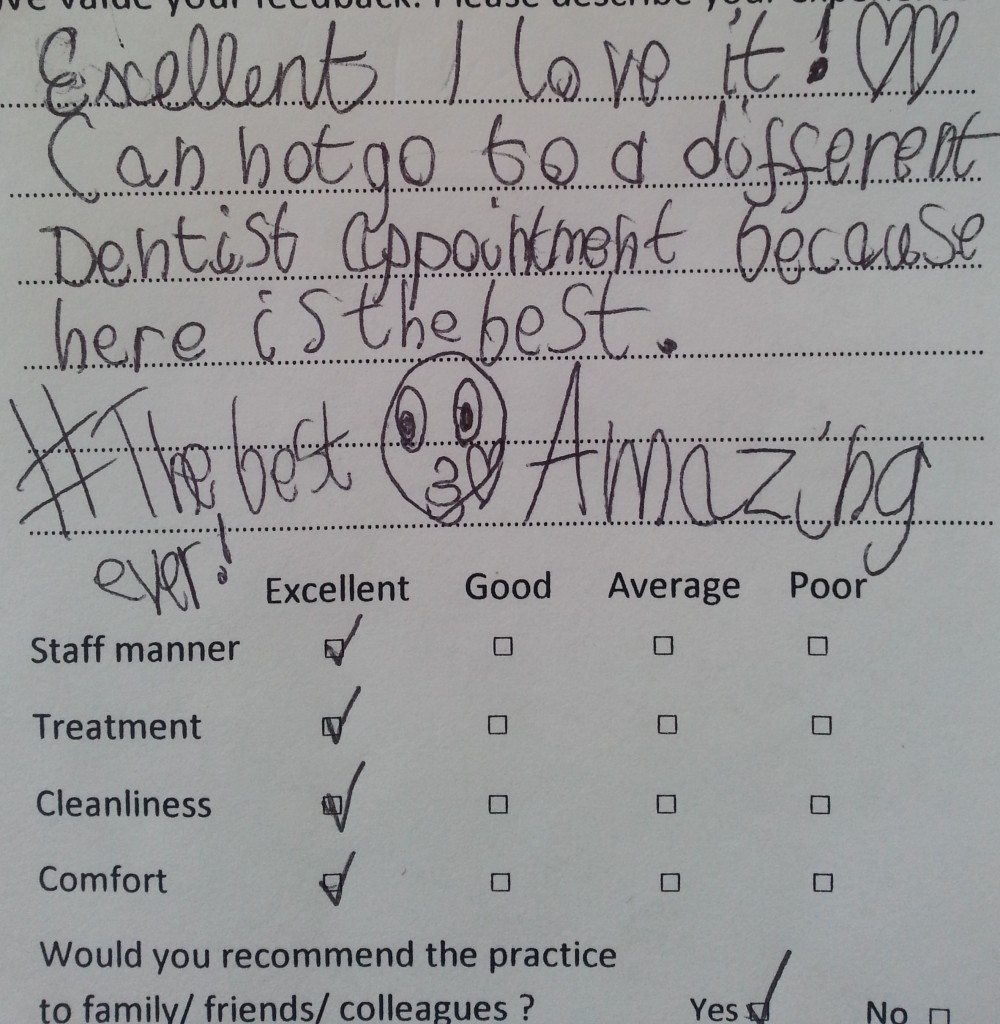 We value your feedback. Please describe your
Excellent I love it!
Can not go to a different
Dentist appointment because
here is the best.
#The best Amazing
ever!
Excellent Good Average Poor
Staff manner
Treatment
Cleanliness
Comfort
Would you recommend the practice
to family/ friends/ colleagues ?
Yes No